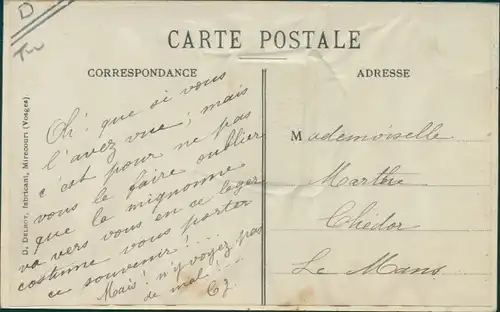 D
Tw
CARTE POSTALE
CORRESPONDANCE
ADRESSE
D. Delboy, fabricant, Mirecourt (Vosges)
Oh! que si vous
l'avez vue; mais
c'est pour ne pas
vous le faire oublier
que la mignonne
va vers vous en ce léger
costume vous porter
ce souvenir! ...
Mais! n'y voyez pas
de mal! ...
Mademoiselle
Marthe
Chédor
Le Mans